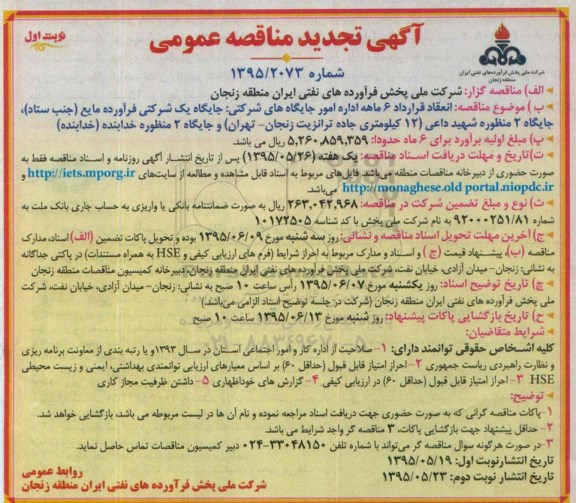 نوبت اول
آگهی تجدید مناقصه عمومی
شرکت ملی پخش فرآورده‌های نفتی ایران
منطقه زنجان
شماره ۱۳۹۵/۲۰۷۳
الف) مناقصه گزار: شرکت ملی پخش فرآورده های نفتی ایران منطقه زنجان
ب) موضوع مناقصه: انعقاد قرارداد ۶ ماهه اداره امور جایگاه های شرکتی: جایگاه یک شرکتی فرآورده مایع (جنب ستاد)،
جایگاه ۲ منظوره شهید داعی (۱۲ کیلومتری جاده ترانزیت زنجان- تهران) و جایگاه ۲ منظوره خدابنده (خدابنده)
پ) مبلغ اولیه برآورد برای ۶ ماه حدودا: ۵,۲۶۰,۸۵۹,۳۵۹ ریال می باشد.
ت) تاریخ و مهلت دریافت اسناد مناقصه: یک هفته (۱۳۹۵/۰۵/۲۶) پس از تاریخ انتشار آگهی روزنامه و اسناد مناقصه فقط به
صورت حضوری از دبیرخانه مناقصات منطقه می باشد. فایل های مربوط به اسناد قابل مشاهده و مطالعه از سایت‌های http://iets.mporg.ir و
http://monaghese.old portal.niopdc.ir می‌باشد
ث) نوع و مبلغ تضمین شرکت در مناقصه: ۲۶۳,۰۴۲,۹۶۸ ریال به صورت ضمانتنامه بانکی یا واریزی به حساب جاری بانک ملت به
شماره ۹۲۰۰۰۰۲۵۱/۸۱ به نام شرکت ملی پخش با کد شناسه ۱۰۱۷۲۵۰۵
ج) آخرین مهلت تحویل اسناد مناقصه و نشانی: روز سه شنبه مورخ ۱۳۹۵/۰۶/۰۹ بوده و تحویل پاکات تضمین (الف) اسناد، مدارک
مناقصه (ب)، پیشنهاد قیمت (ج) و اسناد و مدارک مربوط به احراز شرایط (فرم های ارزیابی کیفی و HSE به همراه مستندات) در پاکتی جداگانه
به نشانی: زنجان- میدان آزادی، خیابان نفت، شرکت ملی پخش فرآورده های نفتی ایران منطقه زنجان، دبیرخانه کمیسیون مناقصات منطقه زنجان
چ) تاریخ توضیح اسناد: روز یکشنبه مورخ ۱۳۹۵/۰۶/۰۷ رأس ساعت ۱۰ صبح به نشانی: زنجان- میدان آزادی، خیابان نفت، شرکت
ملی پخش فرآورده های نفتی ایران منطقه زنجان (شرکت در جلسه توضیح اسناد الزامی می‌باشد)
ح) تاریخ بازگشایی پاکات پیشنهاد: روز شنبه مورخ ۱۳۹۵/۰۶/۱۳ ساعت ۱۰ صبح
شرایط متقاضیان:
کلیه اشخاص حقوقی توانمند دارای: ۱- صلاحیت از اداره کار و امور اجتماعی استان در سال ۱۳۹۳و یا رتبه بندی از معاونت برنامه ریزی
و نظارت راهبردی ریاست جمهوری ۲- احراز امتیاز قابل قبول (حداقل ۶۰) بر اساس معیارهای ارزیابی توانمندی بهداشتی، ایمنی و زیست محیطی
HSE ۳- احراز امتیاز قابل قبول (حداقل ۶۰) در ارزیابی کیفی ۴- گزارش های خوداظهاری ۵- داشتن ظرفیت مجاز کاری
توضیح:
۱-پاکات مناقصه گرانی که به صورت حضوری جهت دریافت اسناد مراجعه نموده و نام آن ها در لیست مربوطه می باشد، بازگشایی خواهد شد.
۲- حداقل پیشنهاد جهت بازگشایی پاکات، ۳ مناقصه گر واجد شرایط می باشد.
۳-در صورت هرگونه سوال مناقصه گر می‌تواند با شماره تلفن ۳۳۰۴۸۱۵۰-۰۲۴ دبیر کمیسیون مناقصات تماس حاصل نماید.
تاریخ انتشارنوبت اول: ۱۳۹۵/۰۵/۱۹
تاریخ انتشار نوبت دوم: ۱۳۹۵/۰۵/۲۳
روابط عمومی
شرکت ملی پخش فرآورده های نفتی ایران منطقه زنجان